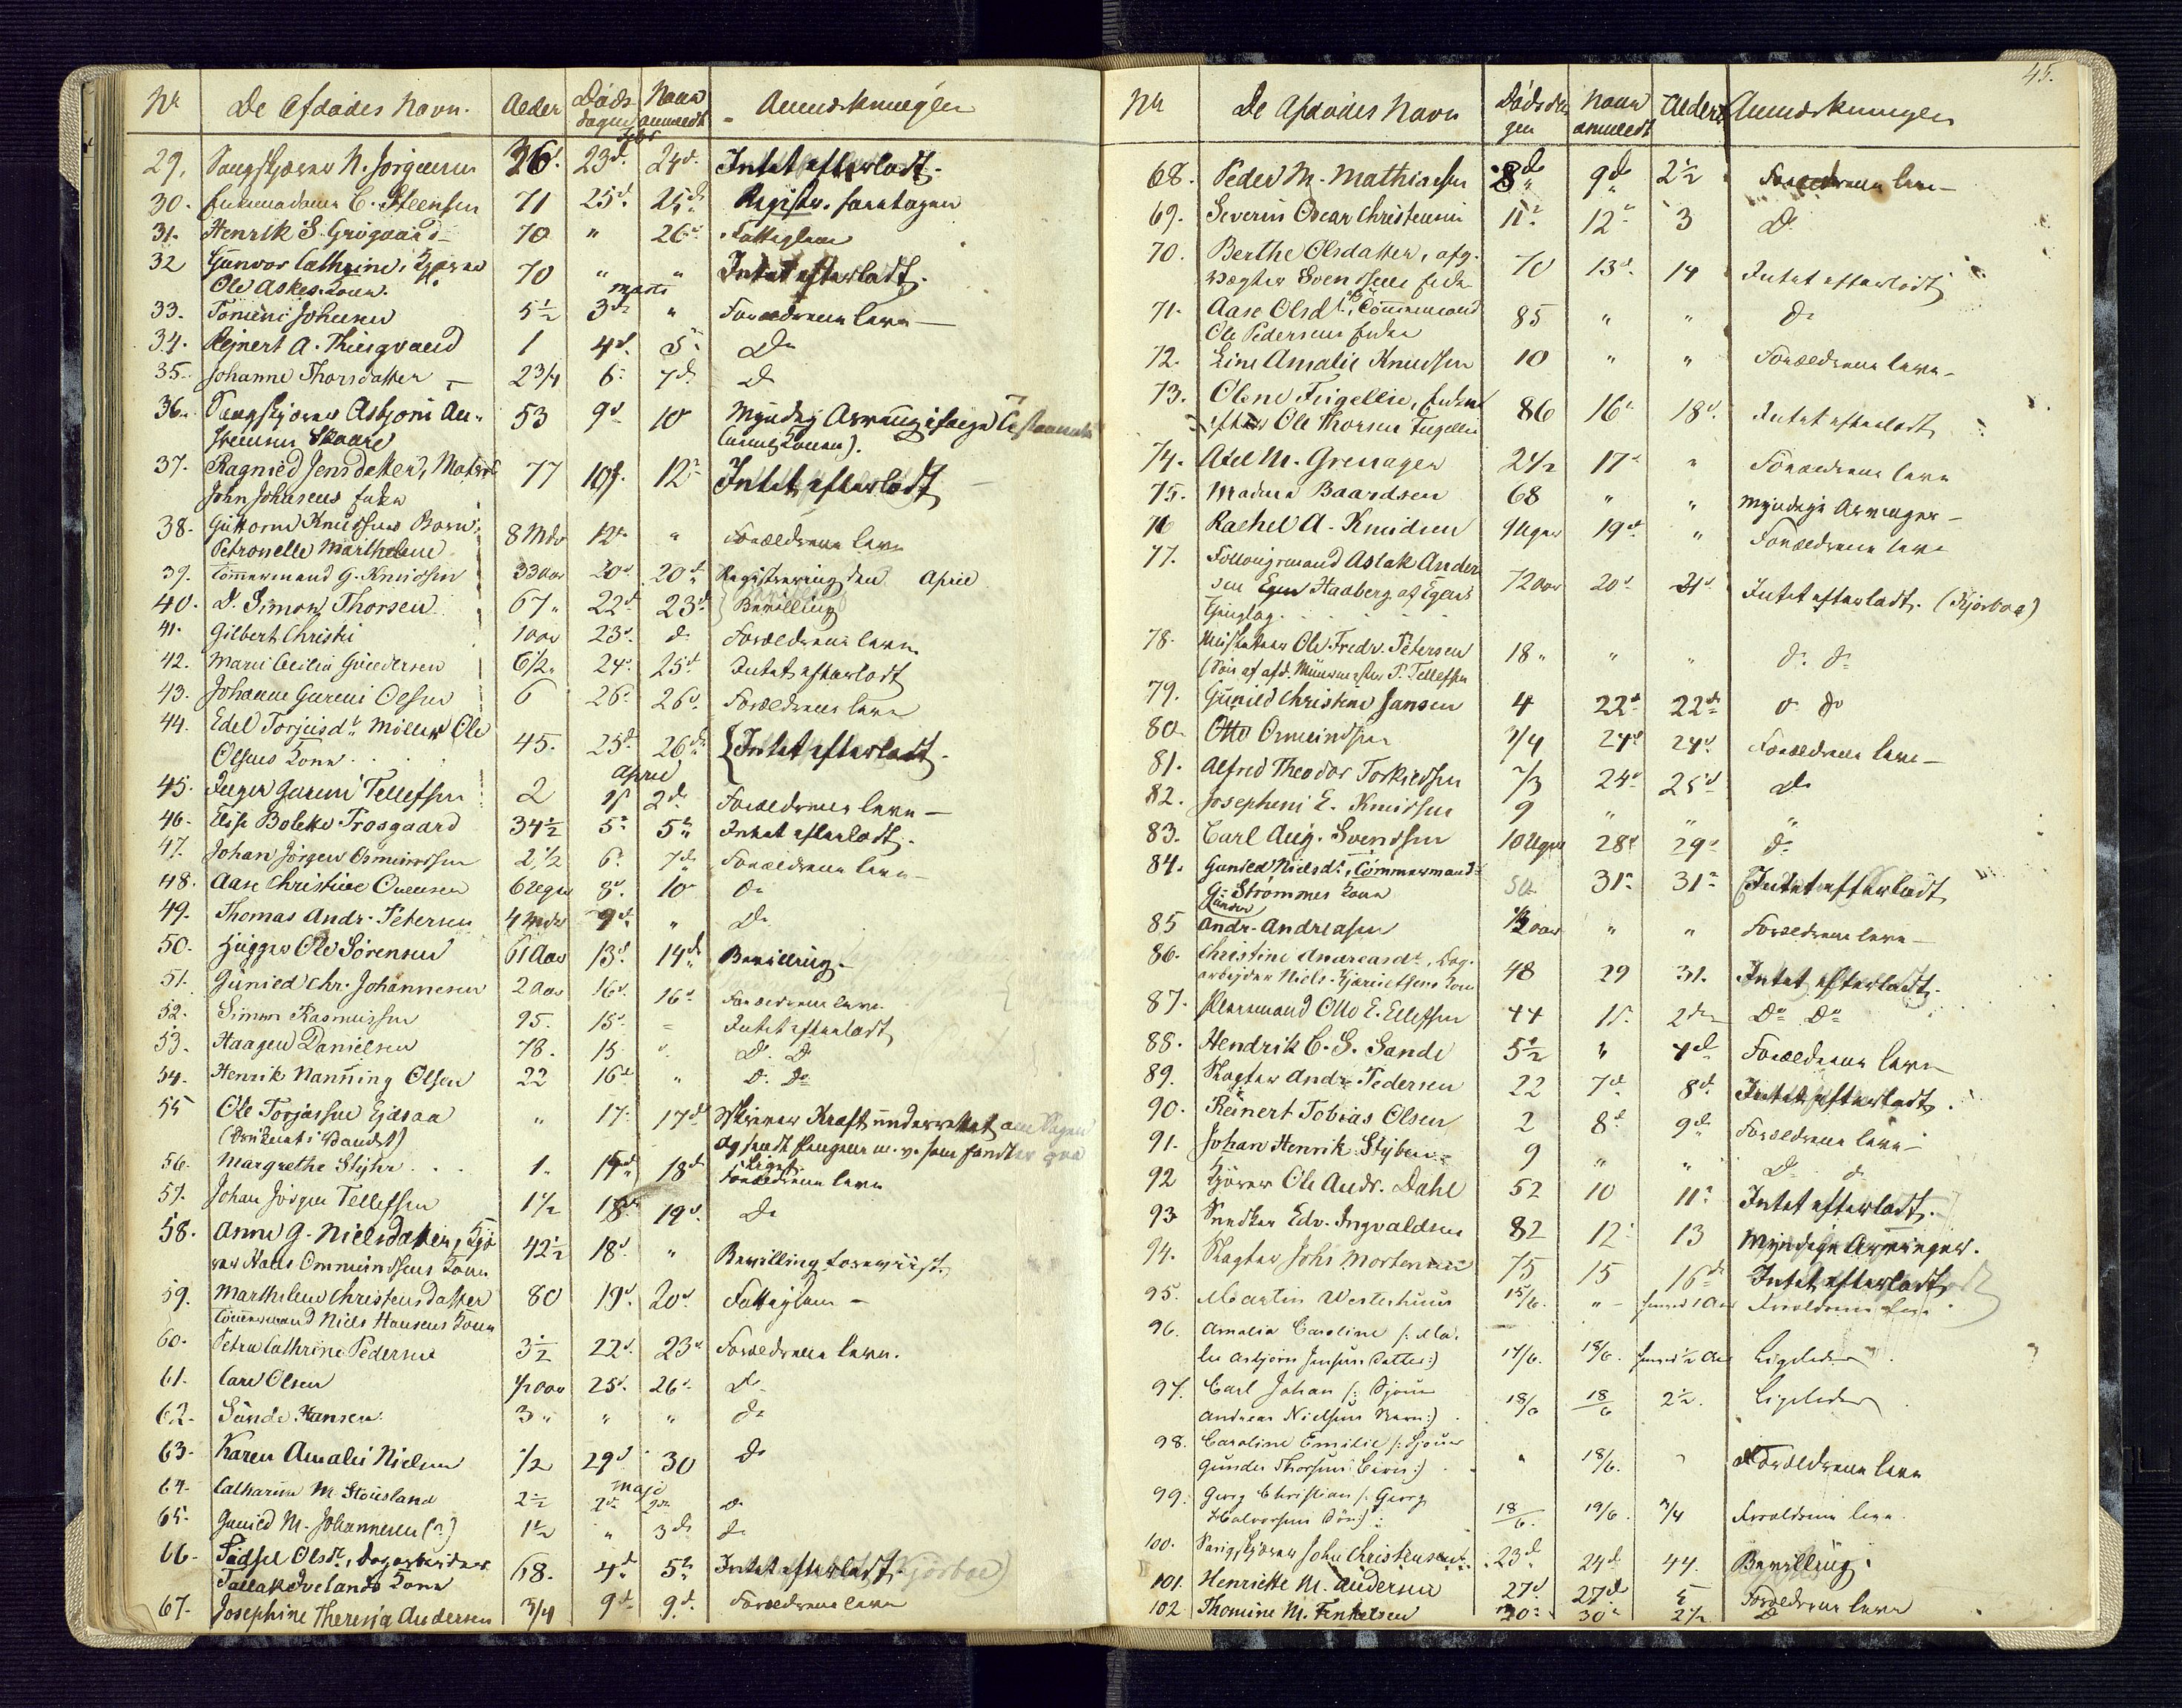 Nr De Afdødes Navn. Alder Døds dagen Naar anmeldt Anmærkninger
Febr
29. Sangskjærer N. Jörgensen 36 23d. 24d. Intet efterladt.
30. Enkemadame C. Steensen 71 25d. 25d. Registr. foretagen
31. Henrik S. Grögaard 70 " 26d. Fattiglem
32 Gunvor Cathrine,
Ole Askes Kone. 70 " " Intet efterladt.
Marts
33. Tomine Johnsen 5½ 3d. " Forældrene leve
34. Rejnert A. Tingvand 1 4d. 5. Do
35. Johanne Thorsdatter 2 3/4 6. 7d. Do
36. Asbjörn 53 9d 10 Myndig Arving ifølge Testamente
Skaare (Konen).
37. Ragnild Jensdatter, Matros 77 10d. 12. Intet efterladt
John Johnsens Enke
38. Guttorm Knudsens Barn,
Petronelle Marthelene 8 Mdr 12. " Forældrene leve
39. Tömmermand G. Knudsen 33 Aar 20d 20d. Registrering den April
40. D. Simon Thorsen 67 " 22d. 23d. Bevilling
41. Gilbert Christi 1 Aar 23d. d. Forældrene leve
42. Maren Cecilia Gundersen 6½ 24. 25d Intet efterladt
43. Johanne Gurine Olsen 6 26. 26d. Forældrene leve
44. Edel Torjusdt. Möller Ole
Olsens Kone 45. 25d. 26d. Intet efterladt.
April
45. Inger Gurine Tellefsen 2 1s 2d. Forældrene leve
46. Elise Bolette Frosgaard 34½ 5. 5. Intet efterladt.
47. Johan Jörgen Osmundsen 2½ 6. 7d. Forældrene leve
48. Aase Christine Ouensen 6 Uger 8d. 10 Do
49. Thomas Andr. Petersen 4 Mdr 9d. " Do
50. Hugger Ole Sörensen 61 Aar 13d. 14d. Bevilling.
51. Gunild Chr. Johannesen 2 Aar 16d. 16d. Forældrene leve
52. Simon Rasmussen 95. 15. " Intet efterladt
53. Haagen Danielsen 78. 15 ". Do Do
54. Henrik Nanning Olsen 22 16d " Do Do
55 Ole Torjussen " 17. 17d. Skriver Kraft underrettet om Sagen
(Druknet i Vandet) og sendt Pengene m. v. som fandtes paa Liget
56. Margrethe Styhr 1. 17d 18d Forældrene leve
57. Johan Jörgen Tellefsen 1½ 18d 19d. Do
58. Anne G. Nielsdatter,
Hans Ommundsens Kone 42½ 18d. " Bevilling foreviist.
59. Marthelene Christensdatter 80 19d. 20d Fattiglem
Tömmermand Niels Hansens Kone
60. Petra Cathrine Pedersen 3½ 22d. 23d Forældrene leve.
61. Carl Olsen ½ Aar 25d. 26d. Do
62. Sunde Hansen 3 " " " Do
63. Karen Amalie Nielsen ½ 29d. 30 Do
Maj
64. Catharine M. Stousland 2½ 2d. 2d. Do
65. Gunild M. Johannesen (?) 1½ " 3d. Do
66. Sidsel Olsdt., Dagarbeider
Tallak Kone 68. 4d 5. Intet efterladt (Kjörboe)
67. Josephine Theresia Andersen 3/4 9d. 9d. Forældrene leve
45.
Nr De Afdødes Navn Dødsdagen Naar anmeldt Alder Anmærkninger
68. Peder M. Mathiasen 8de 9de 2½ Forældrene leve
69. Severin Oscar Christensen 11. 12. 3 Do
70. Berthe Olsdatter, afg.
Vægter Svendsens Enke 70 13d. 14 Intet efterladt
71. Aase Olsdt., Tömmermand
Ole Pedersens Enke 85 " " Do
72. Line Amalie Knudsen 10 " " Forældrene leve
73. Olene Fugellie, Enke
efter Ole Thorsen Fugellie 86 16. 18d. Intet efterladt
74. Axel M. Grenager 2½ 17. " Forældrene leve
75. Madam Baardsen 68 " " Myndige Arvinger
76 Rachel A. Knudsen 9 Uger 19d. " Forældrene leve
77. Aslak Ander
sen Haaberg af Egers 72 Aar 20d. 21d Intet efterladt. (Kjörboe)
78. Ole Fredr. Petersen 18 " " " Do Do
(Sön af afd. Muurmester P. Tellefsen
79. Gunild Christine Jansen 4 22d 22d. Do Do
80. Otto Osmundsen 3/4 24d 24d. Forældrene leve
81. Alfred Theodor Torkildsen 7/3 24d 25d Do
82. Josephine E. Knudsen 9 " " "
83. Carl Aug. Svendsen 10 Uger 28d 29. Do
84. Gunild Nielsdt., Tömmermand
G. Strömmes Kone 50 31. 31. Intet efterladt
(Gunder)
85 Andr. Andreasen ½ Aar " " Forældrene leve
86. Christine Andreasdt., Dag-
arbejder Niels Kone 48 29 31. Intet efterladt.
87. Otto E. Ellefsen 44 1s 2den Do Do
88. Hendrik C. S. Sande 5½ " 4d. Forældrene leve
89. Slagter Andr. Pedersen 22 7d. 8d. Intet efterladt.
90. Reinert Tobias Olsen 2 8d 9d. Forældrene leve
91. Johan Henrik Styben 9 " " Do do
92 Kjörer Ole Andr. Dahl 52 10 11. Intet efterladt.
93 Snedker Edv. Ingvaldsen 82 12. 13 Myndige Arvinger.
94. Slagter Johs Mortensen 75 15 16d Intet efterladt
95. Martin Westerhuus 15/6. " Forældrene leve.
96. Amalia Caroline /: Ma-
ler Asbjörn Jensens Datter:) 17/6. 18/6. Ligeledes
97. Carl Johan /:
Andreas Nielsens Barn:) 18/6 18/6 2½. Ligeledes
98. Caroline Emilie /:
Gunder Thorsens Barn:) " 18/6. " Forældrene leve
99. Georg Christian /: Georg
Halvorsens Sön:) 18/6. 19/6. 3/4 Forældrene leve.
100. Sangskjærer John Christensen 23d 24d 44. Bevilling.
101. Henriette M. Andersen 27d 27d 5 Forældrene leve
102 Thomine M. Terkelsen 30. 30. 2½ Do